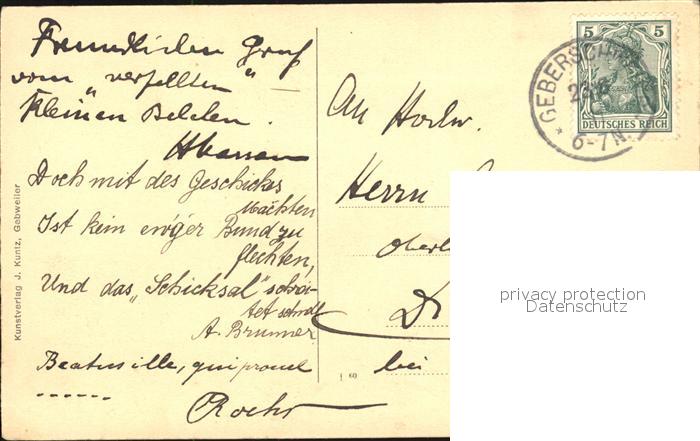 Freundlichen Gruß
vom "verfellten"
kleinen Belchen.
Doch mit des Geschickes
Mächten
Ist kein ew'ger Bund zu
flechten,
Und das "Schicksal"
A. Brunner
Beatus ille, qui procul
------
Roehr
Kunstverlag J. Kuntz, Gebweiler
An Hochw.
Herrn
Oberl
D
bei
1 60
5 5
DEUTSCHES REICH
GEBERSCH
* 6-7N.
privacy protection
Datenschutz